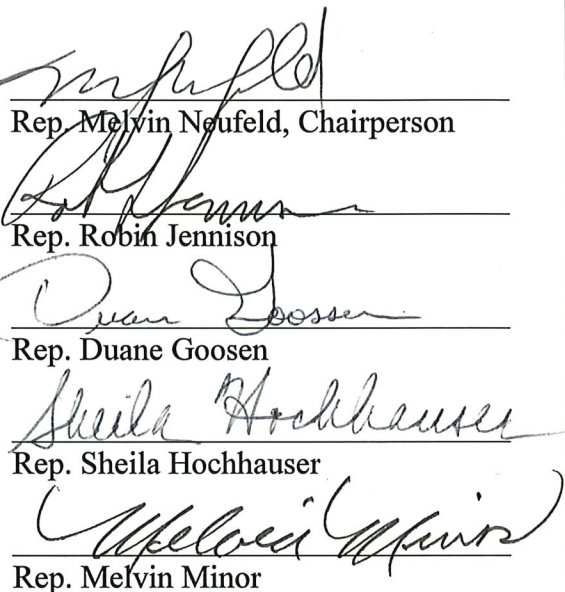 M Neufeld
Rep. Melvin Neufeld, Chairperson
Rob Jennison
Rep. Robin Jennison
Duane Goossen
Rep. Duane Goosen
Sheila Hochhauser
Rep. Sheila Hochhauser
Melvin Minor
Rep. Melvin Minor